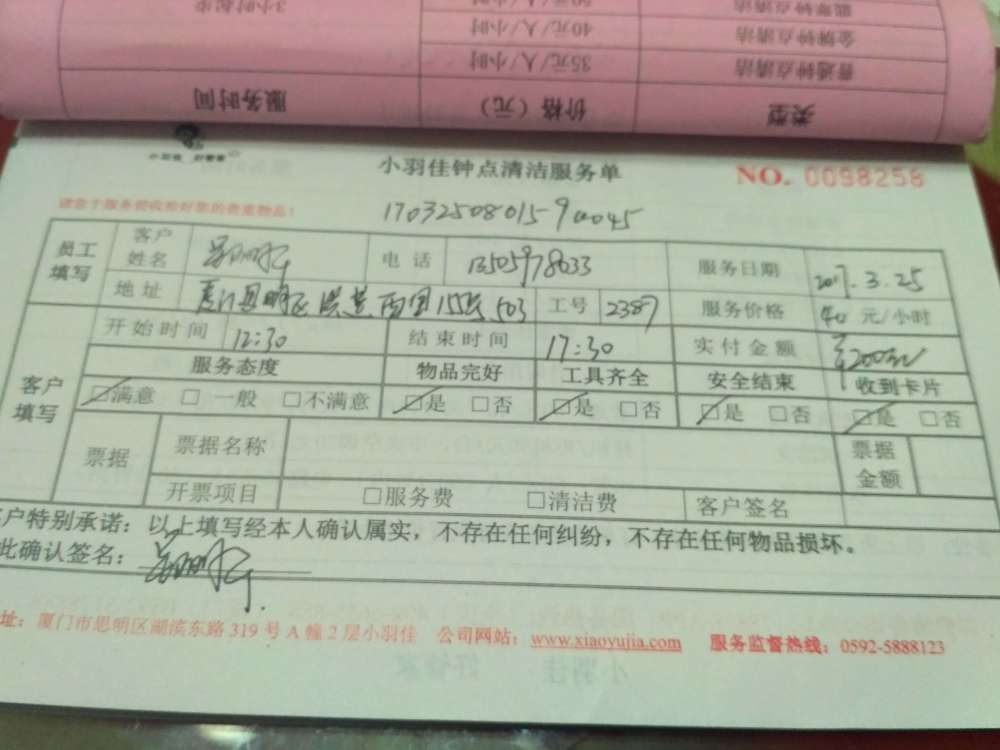 3小时起步
50元/人/小时
银牌钟点清洁
40元/人/小时
金牌钟点清洁
35元/人/小时
普通钟点清洁
服务时间
价格（元）
类型
小羽佳 好管家
小羽佳钟点清洁服务单
NO. 0098258
请您于服务前收拾好您的贵重物品！
员工填写
客户姓名
电话
13505978633
服务日期
2017.3.25
地址
厦门思明区
15
503
工号
2387
服务价格
40 元/小时
客户填写
开始时间
12:30
结束时间
17:30
实付金额
¥200元
服务态度
物品完好
工具齐全
安全结束
收到卡片
□满意 □一般 □不满意 □是 □否 □是 □否 □是 □否 □是 □否
票据
票据名称
票据金额
开票项目
□服务费 □清洁费
客户签名
客户特别承诺：以上填写经本人确认属实，不存在任何纠纷，不存在任何物品损坏。
此确认签名：
址：厦门市思明区湖滨东路 319 号 A 幢 2 层小羽佳 公司网站：www.xiaoyujia.com 服务监督热线：0592-5888123
小羽佳 好管家